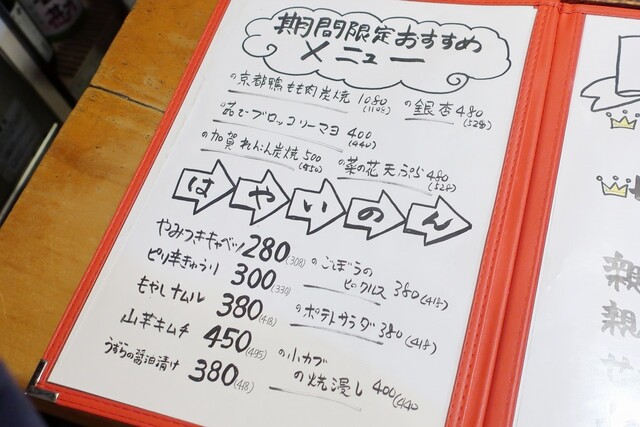 期間限定おすすめ
メニュー
の京都鴨もも肉炭焼 1080 (1188)
の銀杏 480 (528)
茹でブロッコリーマヨ 400 (440)
の加賀れんこん炭焼 500 (550)
の菜の花天ぷら 480 (528)
はやいのん
やみつきキャベツ 280 (308)
ピリ辛きゅうり 300 (330)
もやしナムル 380 (418)
山芋キムチ 450 (495)
うずらの醤油漬け 380 (418)
のごぼうの
ピクルス 380 (418)
のポテトサラダ 380 (418)
の小カブ
の焼浸し 400 (440
親
親